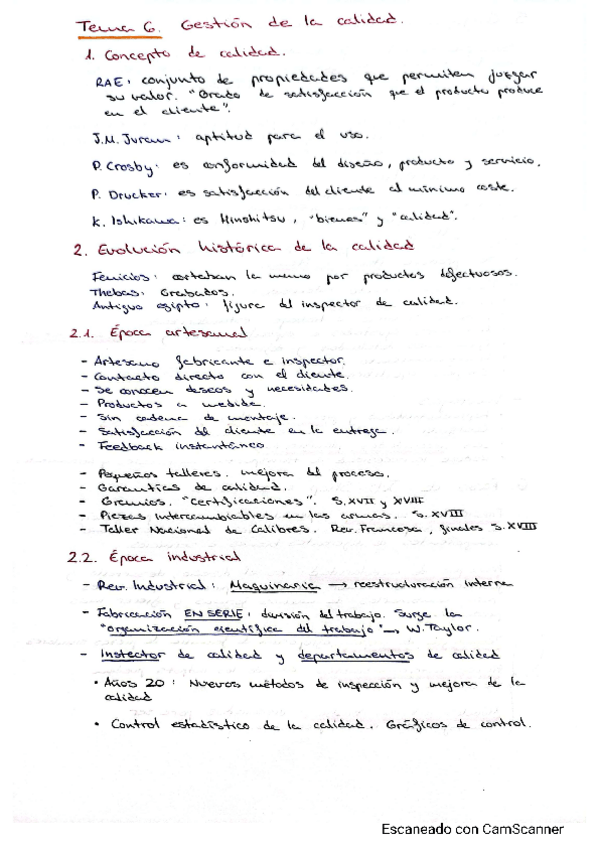 Tema 6. Gestión de la calidad.
1. Concepto de calidad.
RAE: conjunto de propiedades que permiten juzgar
su valor. "Grado de satisfacción que el producto produce
en el cliente".
J.M. Juran: aptitud para el uso.
P. Crosby: es conformidad del diseño, producto y servicio.
P. Drucker: es satisfacción del cliente al mínimo coste.
K. Ishikawa: es Hinshitsu, "bienes" y "calidad".
2. Evolución histórica de la calidad
Fenicios: cortaban la mano por productos defectuosos.
Thebas: Grabados.
Antiguo egipto: figura del inspector de calidad.
2.1. Época artesanal
- Artesano fabricante e inspector.
- Contacto directo con el cliente.
- Se conocen deseos y necesidades.
- Productos a medida.
- Sin cadena de montaje.
- Satisfacción del cliente en la entrega.
- Feedback instantáneo
- Pequeños talleres. mejora del proceso.
- Garantías de calidad.
- Gremios, "certificaciones". S.XVII y XVIII
- Piezas intercambiables en las armas. S.XVIII
- Taller Nacional de Calibres. Rev. Francesa, finales S.XVIII
2.2. Época industrial
- Rev. Industrial: Maquinaria → reestructuración interna
- Fabricación EN SERIE: división del trabajo. Surge la
"organización científica del trabajo" → W. Taylor.
- Instector de calidad y departamentos de calidad
• Años 20: Nuevos métodos de inspección y mejora de la
calidad
• Control estadístico de la calidad. Gráficos de control.
Escaneado con CamScanner